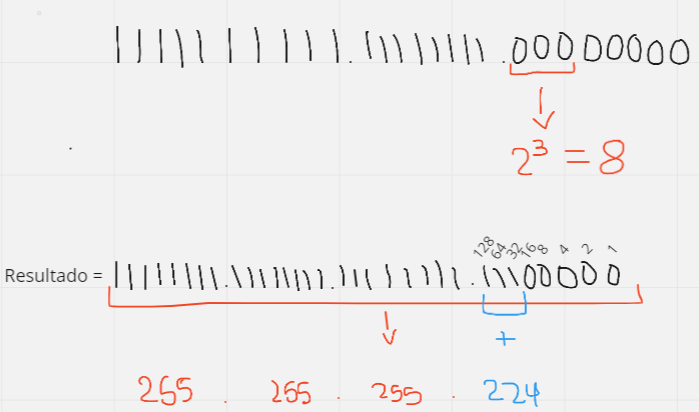 1111111111.11111111.00000000
2³ = 8
128 64 32 16 8 4 2 1
Resultado = 11111111.11111111.11111111.11100000
+
255 . 255 . 255 . 224